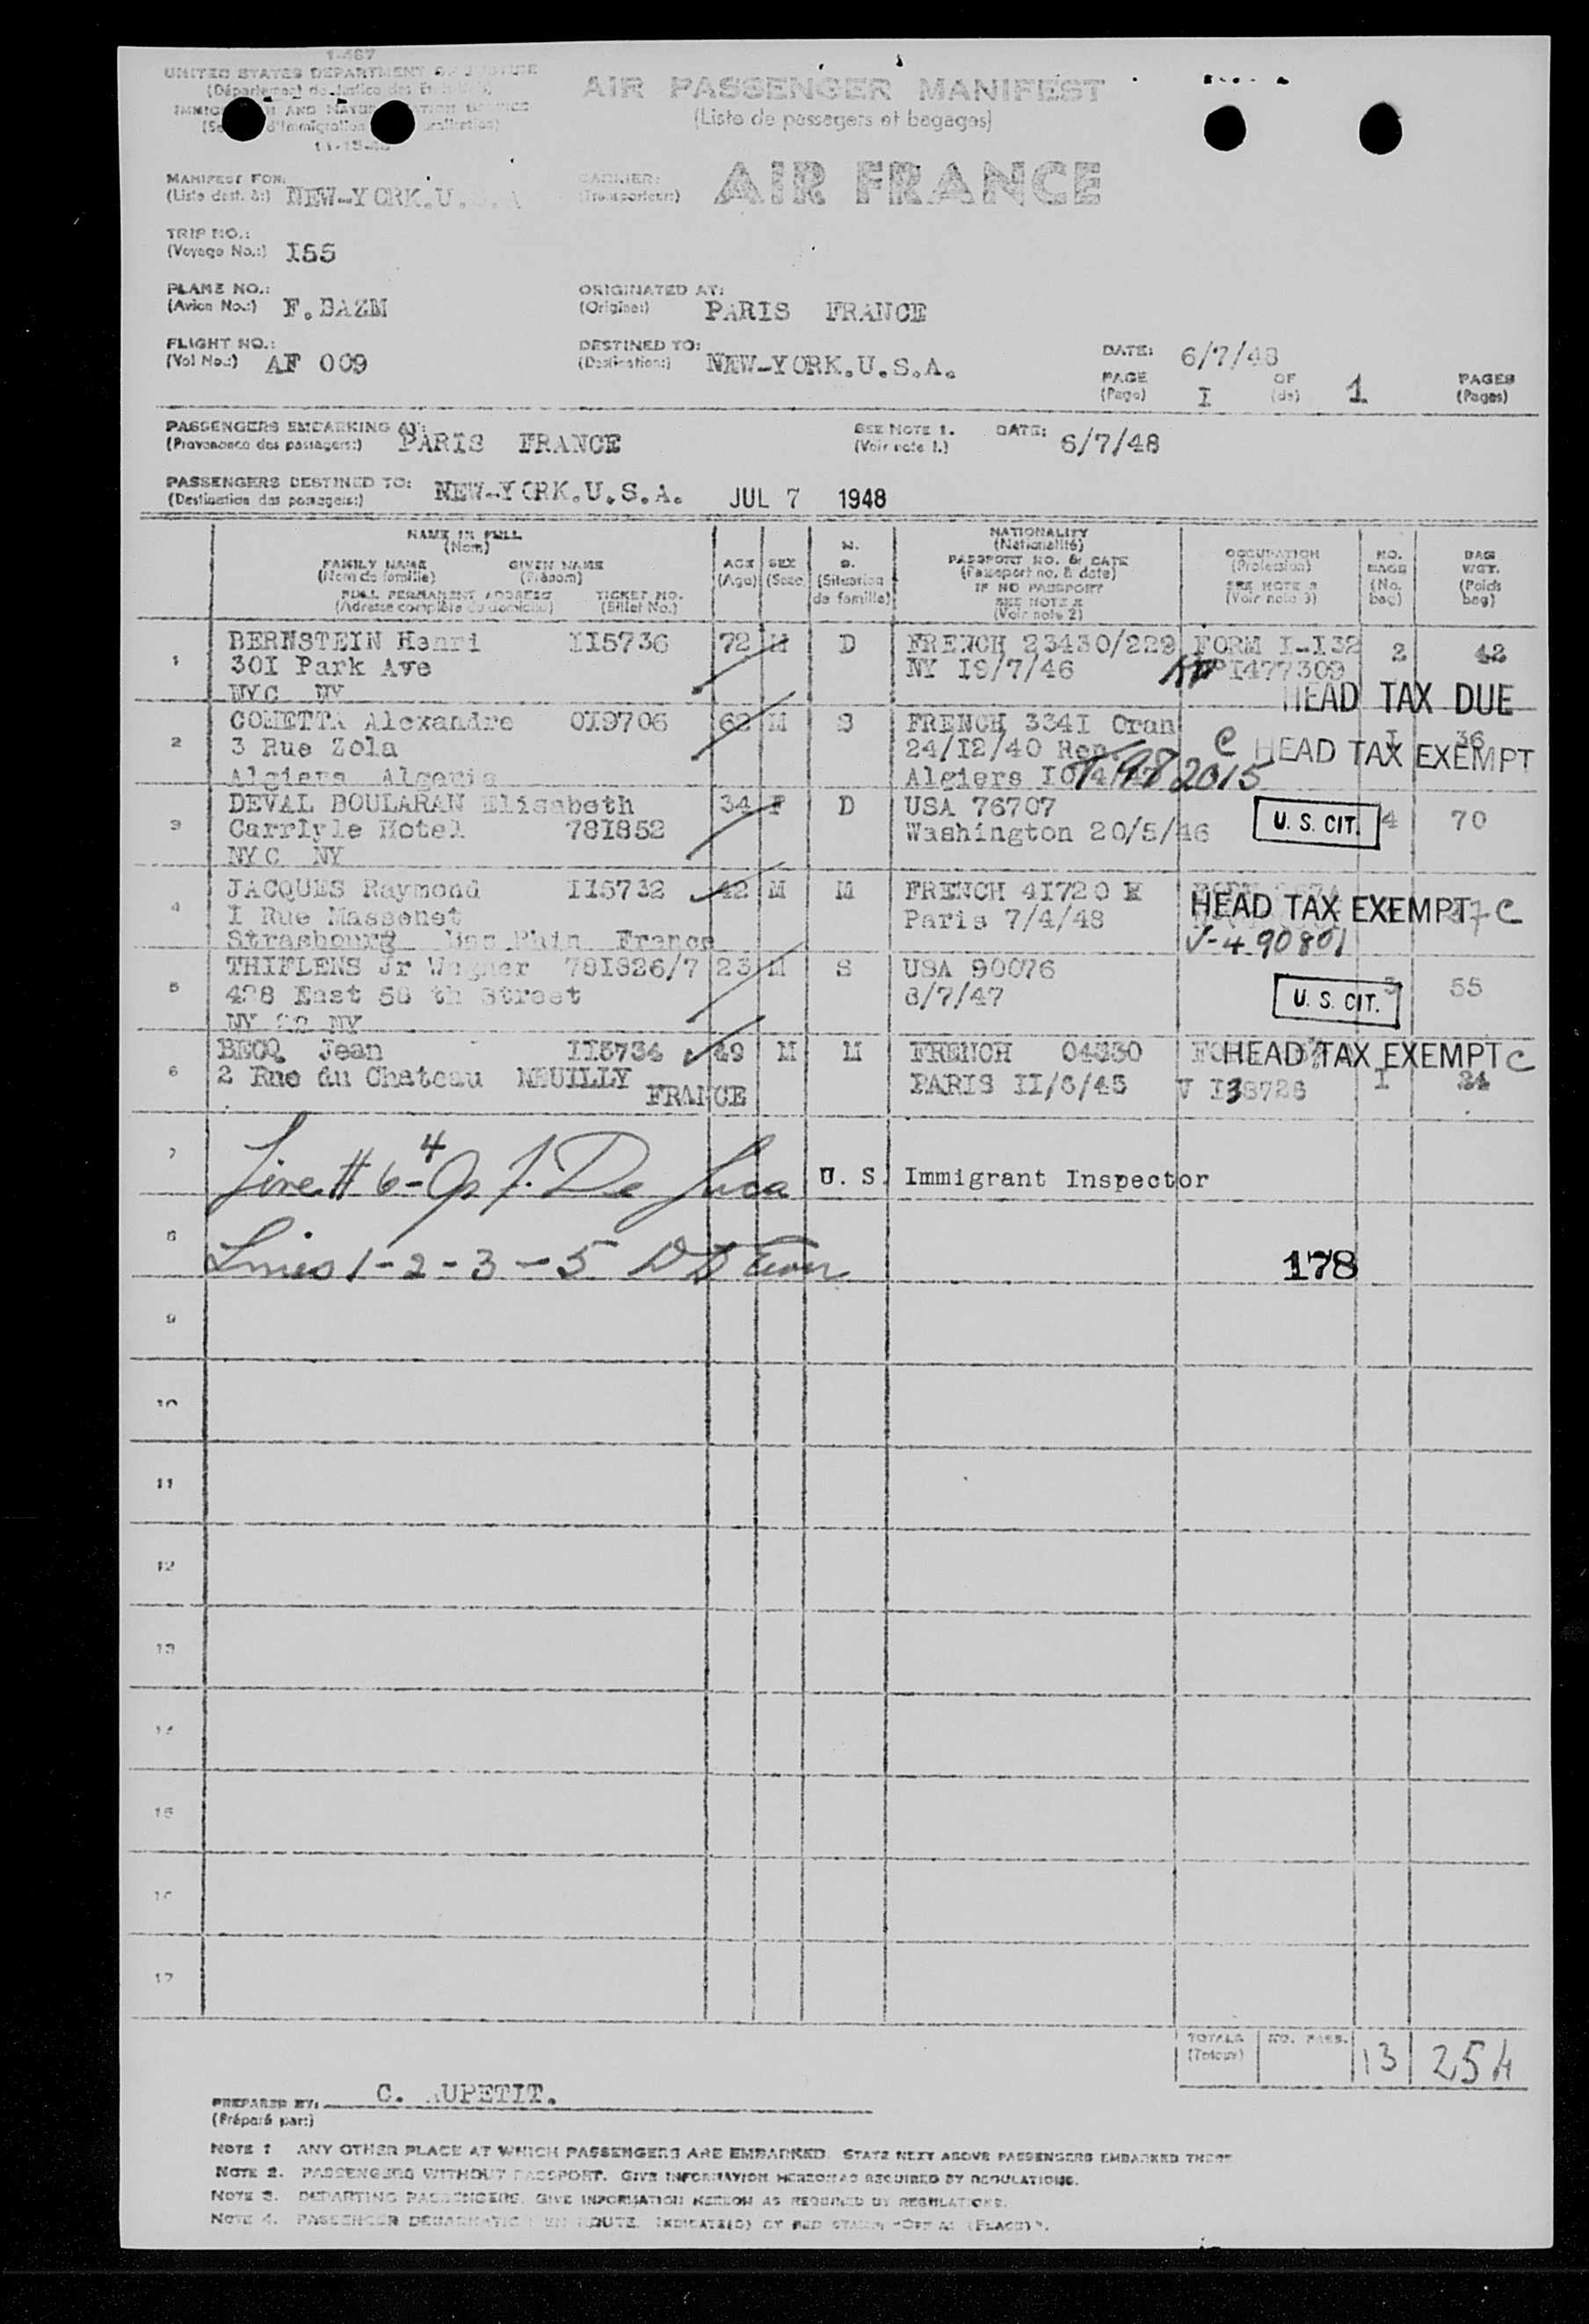 I-467
UNITED STATES DEPARTMENT OF JUSTICE
(Département de Justice des
IMMIGRATION AND NATURALIZATION SERVICE
AIR PASSENGER MANIFEST
(Liste de passagers et bagages)
MANIFEST FOR:
(Liste dest. à:) NEW-YORK.U.S.A
CARRIER:
(Transporteur:) AIR FRANCE
TRIP NO.:
(Voyage No.:) I55
PLANE NO.:
(Avion No.:) F.BAZM
ORIGINATED AT:
(Origine:) PARIS FRANCE
FLIGHT NO.:
(Vol No.:) AF 009
DESTINED TO:
(Destination:) NEW-YORK.U.S.A.
DATE: 6/7/48
PAGE (Page) I OF (de) 1 PAGES (Pages)
PASSENGERS EMBARKING AT:
(Provenance des passagers:) PARIS FRANCE
SEE NOTE 1.
(Voir note 1.)
DATE: 6/7/48
PASSENGERS DESTINED TO:
(Destination des passagers:) NEW-YORK.U.S.A. JUL 7 1948
NAME IN FULL
(Nom)
FAMILY NAME GIVEN NAME
(Nom de famille) (Prénom)
FULL PERMANENT ADDRESS TICKET NO.
(Adresse complète du domicile) (Billet No.)
AGE
(Age)
SEX
(Sexe)
(Situation
de famille)
NATIONALITY
(Nationalité)
PASSPORT NO. & DATE
(Passeport no. & date)
IF NO PASSPORT
SEE NOTE 2
(Voir note 2)
OCCUPATION
(Profession)
SEE NOTE 3
(Voir note 3)
NO.
BAGS
(No.
bag)
BAG
WGT.
(Poids
bag)
1 BERNSTEIN Henri II5736 72 M D FRENCH 23430/229 FORM I-I32 2 42
30I Park Ave NY I9/7/46 I477309
NYC NY HEAD TAX DUE
2 COMETTA Alexandre 0I9706 62 M S FRENCH 334I Oran I 36
3 Rue Zola 24/I2/40 Ren. C HEAD TAX EXEMPT
Algiers Algeria Algiers 2015
3 DEVAL BOULARAN Elisabeth 34 F D USA 76707 4 70
Carrlyle Hotel 781852 Washington 20/5/46 U. S. CIT.
NYC NY
4 JACQUES Raymond II5732 42 M M FRENCH 4I720 E
I Rue Massenet Paris 7/4/48 HEAD TAX EXEMPT C
Strasbourg Bas Rhin France V-490801
5 THIFLENS Jr Wagner 781826/7 23 M S USA 90076 55
428 East 58 th Street 6/7/47 U. S. CIT.
NY 22 NY
6 BECQ Jean II5734 49 M M FRENCH 04330 HEAD TAX EXEMPT C
2 Rue du Chateau NEUILLY PARIS II/6/45 V I38726 I 24
FRANCE
7 Line # 6-4 J. De Luca U. S. Immigrant Inspector
8 Lines 1-2-3-5
178
9
10
11
12
13
14
15
16
17
TOTALS
(Totaux) NO. PASS. 13 254
PREPARED BY: C. AUPETIT.
(Préparé par:)
NOTE 1 ANY OTHER PLACE AT WHICH PASSENGERS ARE EMBARKED. STATE NEXT ABOVE PASSENGERS EMBARKED THERE
NOTE 2. PASSENGERS WITHOUT PASSPORT. GIVE INFORMATION HEREON AS REQUIRED BY REGULATIONS.
NOTE 3. DEPARTING PASSENGERS. GIVE INFORMATION HEREON AS REQUIRED BY REGULATIONS.
NOTE 4. PASSENGER DEBARKATION EN ROUTE. INDICATE(D) BY RED STAMP "OFF AT (PLACE)".